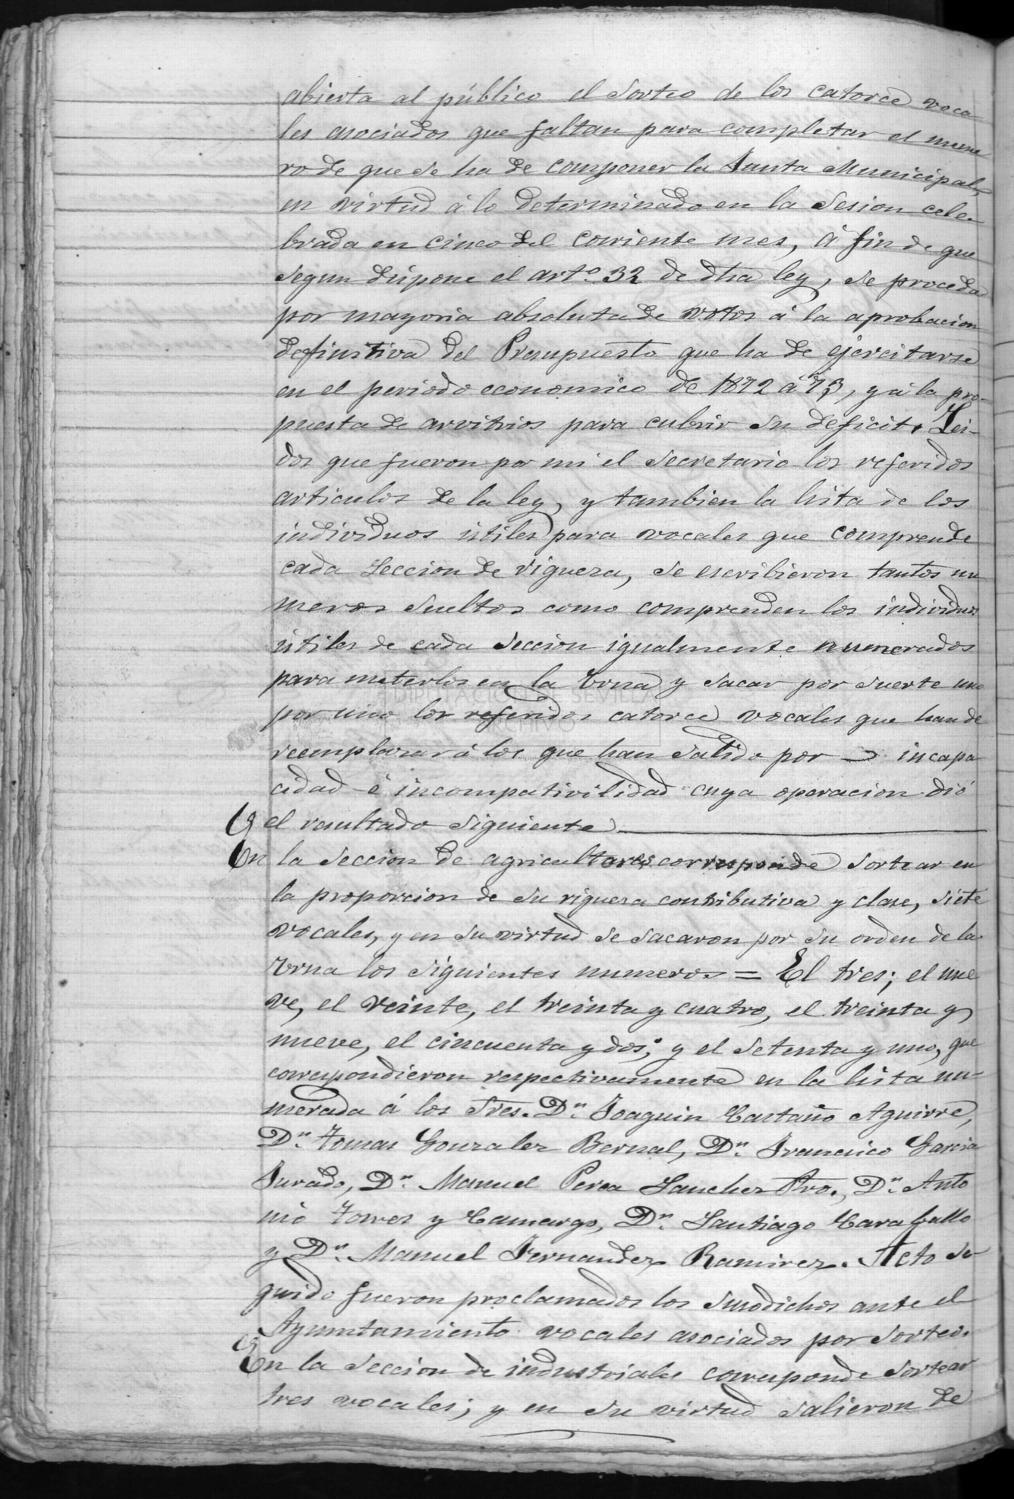 abierta al público el Sorteo de los catorce voca
les asociados que faltan para completar el nume
ro de que se ha de componer la Junta Municipal,
en virtud á lo determinado en la Sesion cele-
brada en cinco del corriente mes, á fin de que
segun dispone el artº 32 de dha ley, se proceda
por mayoria absoluta de votos á la aprobacion
definitiva del Presupuesto que ha de ejercitarse
en el periodo economico de 1872 á 73, y á la pro-
puesta de arvitrios para cubrir su deficit. Lei-
dos que fueron por mi el Secretario los referidos
articulos de la ley, y tambien la lista de los
individuos utiles para vocales que comprende
cada Seccion de riqueza, se escribieron tantos nu
meros sueltos como comprenden los individuos
utiles de cada Seccion igualmente numerados
para meterlos en la Urna y sacar por suerte uno
por uno los referidos catorce vocales que han de
reemplazar á los que han salido por incapa
cidad é incompativilidad cuya operacion dió
el resultado siguiente
En la Seccion de agricultores corresponde Sortear en
la proporcion de su riqueza contributiva y clase, siete
vocales, y en su virtud se sacaron por su orden de la
Urna los siguientes numeros = El tres; el nue
ve, el veinte, el treinta y cuatro, el treinta y
nueve, el cincuenta y dos; y el setenta y uno, que
correspondieron respectivamente en la lista nu-
merada á los Sres. Dn. Joaquin Castaño Aguirre,
Dn. Tomas Gonzalez Bernal, Dn. Francisco Garcia
Jurado, Dn. Manuel Perea Sanchez Pro., Dn. Anto
nio Torres y Camargo, Dn. Santiago Caraballo
y Dn. Manuel Fernandez Ramirez. Acto se
guido fueron proclamados los susodichos ante el
Ayuntamiento vocales asociados por Sorteo.
En la Seccion de industriales corresponde Sortear
tres vocales; y en su virtud salieron de